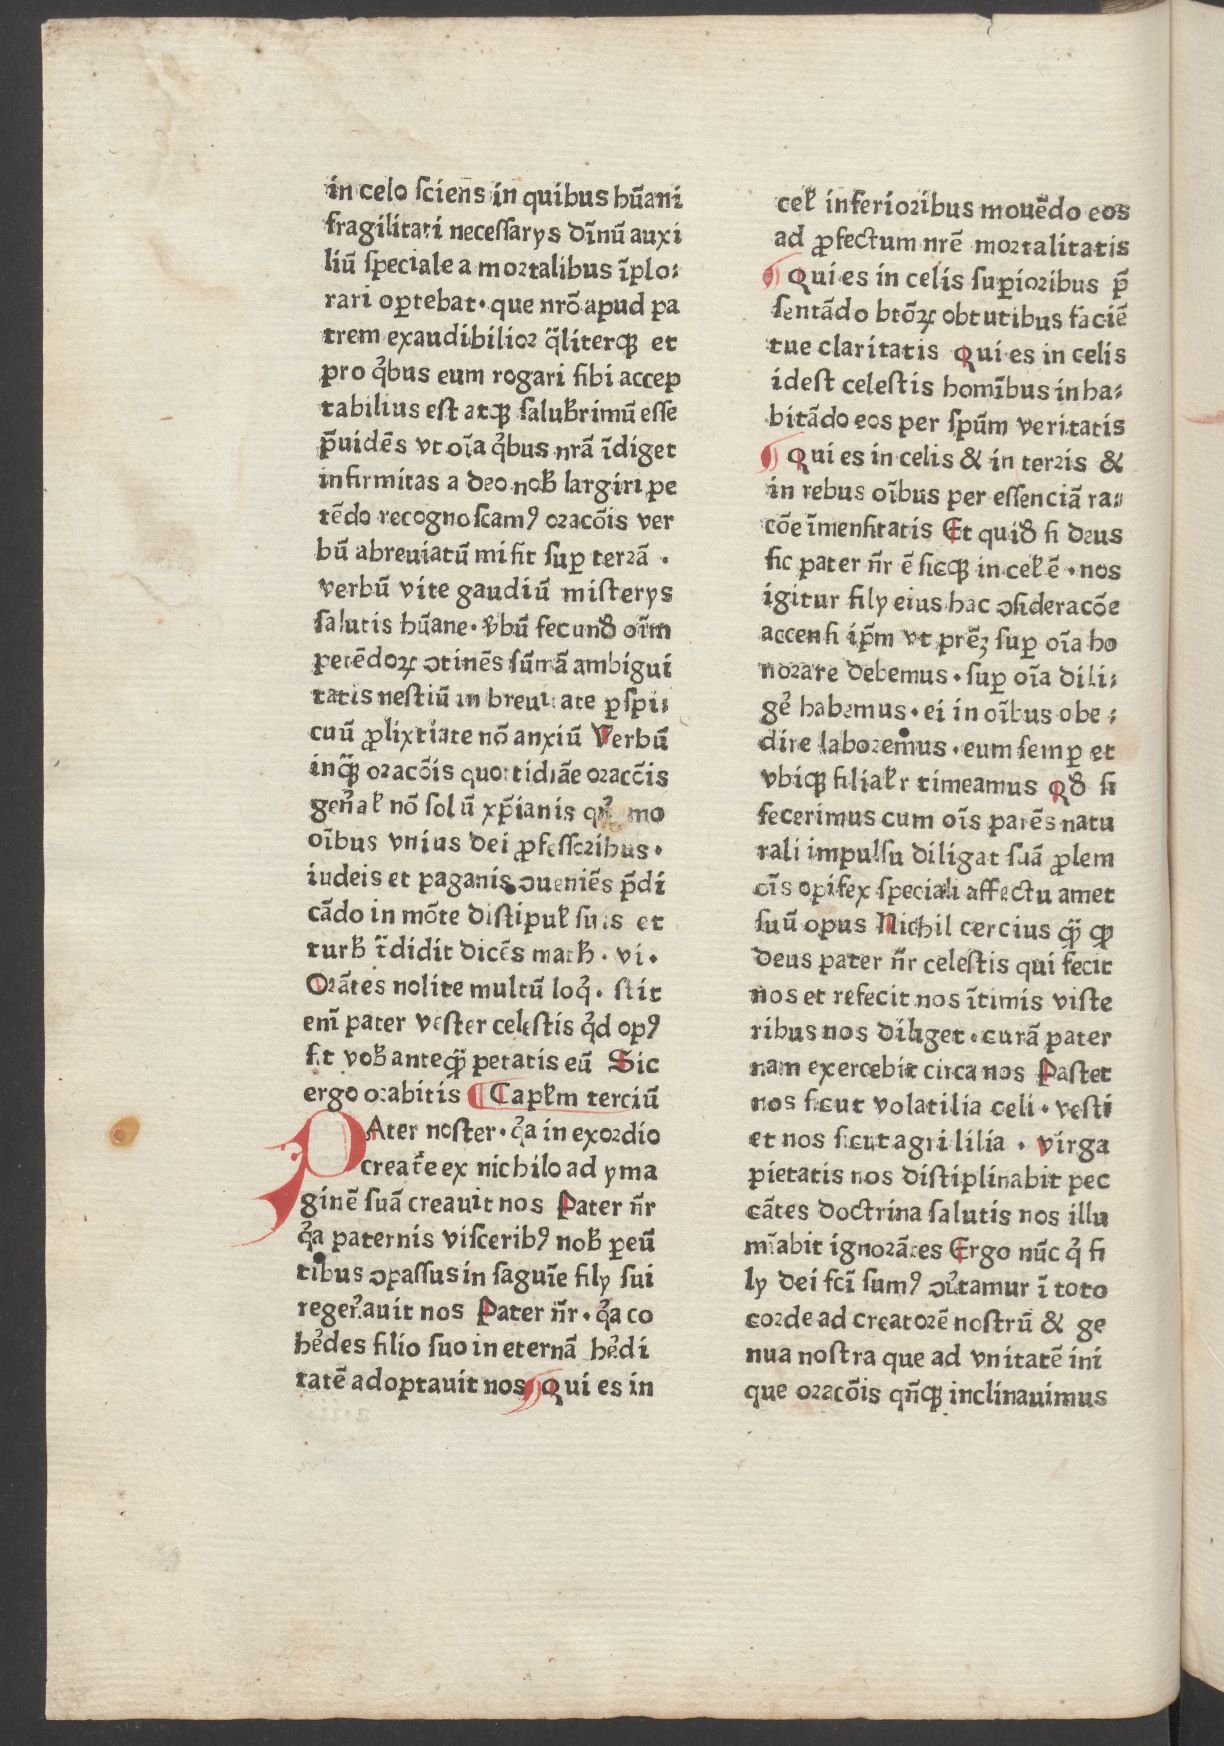 in celo sciens in quibus hūani
fragilitati necessarys dīnū auxi
liū speciale a mortalibus īplo⸗
rari oꝑtebat· que nrō apud pa
trem exaudibilior q̈literqꝫ et
pro qͥbus eum rogari sibi accep
tabilius est atqꝫ salubrimū esse
p̄uidēs vt oīa qͥbus nrā īdiget
infirmitas a deo nob̄ largiri pe
tēdo recognoscamꝰ oracōis ver
bū abreuiatū misit suꝑ terrā ·
verbū vite gaudiū misterys
salutis hūane· v̓bū fecund̄ oīm
petēdoꝝ ꝯtinēs sūmā ambigui
tatis nestiū in breuitate ꝑspi⸗
cuū ꝓlixitate nō anxiū Verbū
inq̈ꝫ oracōis quottidiāe oracōis
gen̓al̄ nō solū xp̄ianis
oībus vnius dei ꝓfessoribus·
iudeis et paganis ꝯueniēs p̄di
cādo in mōte distipul̄ suis et
turb̄ t̄didit dicēs math̄ · vi·
Orātes nolite multū loqͥ· stit
enī pater vester celestis qͥd opꝰ
sit vob̄ anteqꝫ̈ petatis eū Sic
ergo orabitis ¶ Capl̄m terciū
PAter noster· qͥa in exordio
creat̄e ex nichilo ad yma
ginē suā creauit nos Pater n̄r
qͥa paternis visceribꝰ nob̄ ꝑeū
tibus ꝯpassus in saguīe fily sui
regen̓auit nos Pater n̄r· qͥa co
he̓des filio suo in eternā he̓di
tatē adoptauit nos ¶ Qui es in
cel̄ inferioribus mouēdo eos
ad ꝓfectum nrē mortalitatis
¶ Qui es in celis suꝑioribus p̄
sentādo btōꝝ obtutibus faciē
tue claritatis Qui es in celis
idest celestis homībus inha⸗
bitādo eos per spūm veritatis
¶ Qui es in celis & in terris &
in rebus oībus per essenciā ra⸗
cōe īmensitatis Et quid̄ si deus
sic pater n̄r ē sicqꝫ in cel̄ ē · nos
igitur fily eius hac ꝯsideracōe
accensi ip̄m vt prēꝫ suꝑ oīa ho
norare debemus· suꝑ oīa dili⸗
ge̓ habemus· ei in oībus obe⸗
dire laboremus· eum semꝑ et
vbiqꝫ filial̄r timeamus Qd̄ si
fecerimus cum oīs parēs natu
rali impulsu diligat suā ꝓlem
oīs opifex speciali affectu amet
suū opus Nichil cercius qꝫ̈ ꝙ
deus pater n̄r celestis qui fecit
nos et refecit nos ītimis viste
ribus nos diliget· curā pater
nam exercebit circa nos Pastet
nos sicut volatilia celi· vesti
et nos sicut agri lilia · virga
pietatis nos distiplinabit pec
cātes doctrina salutis nos illu
mīabit ignorātes Ergo nūc qͥ fi
ly dei fcī sumꝰ ꝯu̓tamur ī toto
corde ad creatorē nostrū & ge
nua nostra que ad vnitatē ini
que oracōis qn̄qꝫ inclinauimus